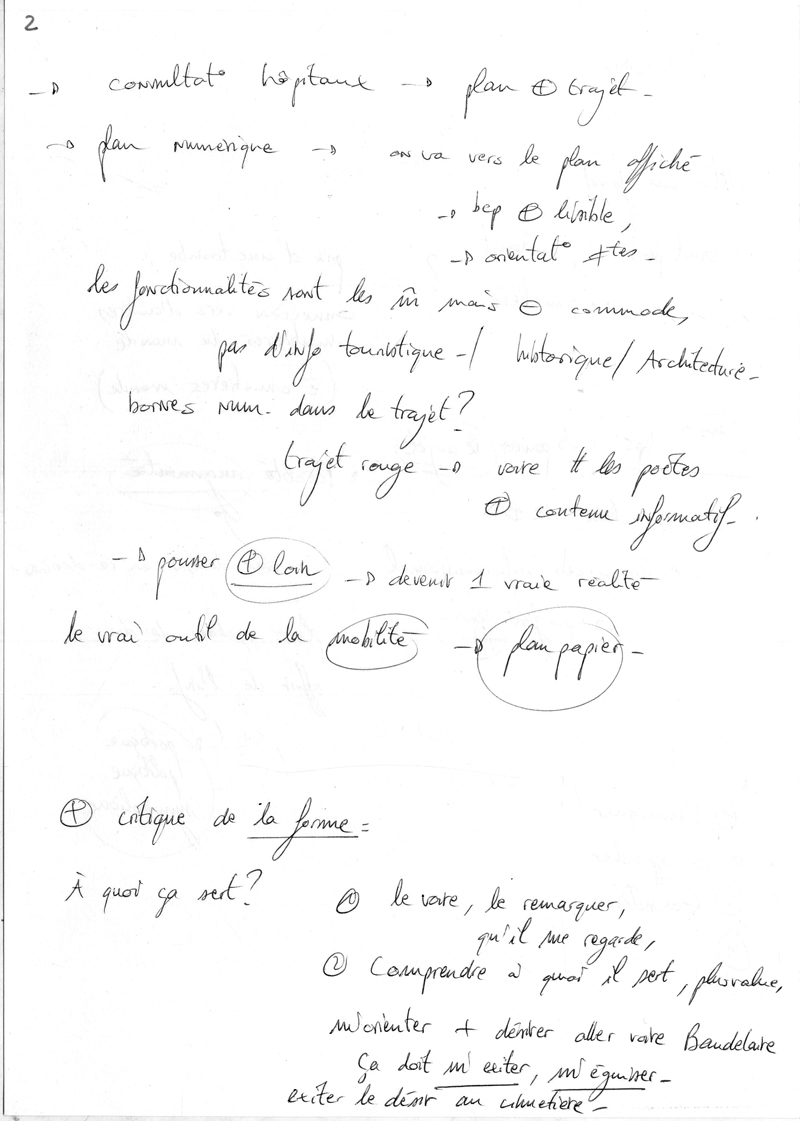 2
→ consultat° hôpitaux → plan ⊕ trajet -
→ plan numérique → on va vers le plan affiché
→ bcp ⊕ lisible,
→ orientat° ≠tes -
les fonctionnalités sont les m̂ mais ⊖ commode,
pas d'info touristique - / historique / Architecture -
bornes num. dans le trajet ?
trajet rouge → voire # les poètes
⊕ contenu informatif -
→ pousser ⊕ loin → devenir 1 vraie réalité
le vrai outil de la mobilité → plan papier -
⊕ critique de la forme =
À quoi ça sert ?
① le voire, le remarquer,
qu'il me regarde,
② Comprendre à quoi il sert, plus value,
m'orienter + désirer aller voire Baudelaire
ça doit m'exiter, m'éguiser -
exiter le désir au cimetière -